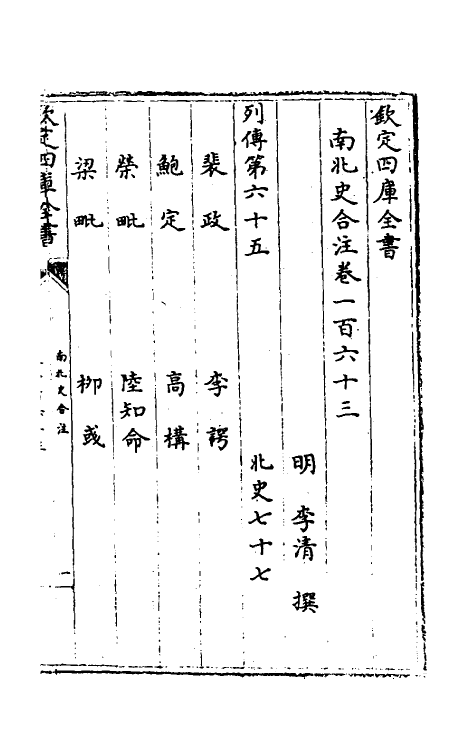 欽定四庫全書
南北史合注卷一百六十三
明 李清 撰
列傳第六十五 北史七十七
裴政 李諤
鮑定 高構
榮毗 陸知命
梁毗 栁彧
欽定四庫全書
南北史合注